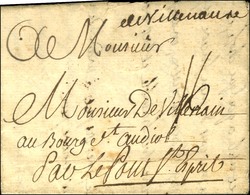 deVillenauxe
A Monsieur
Monsieur De Villerain
au Bourg St. Andiol
Par Le Pont St. Esprit